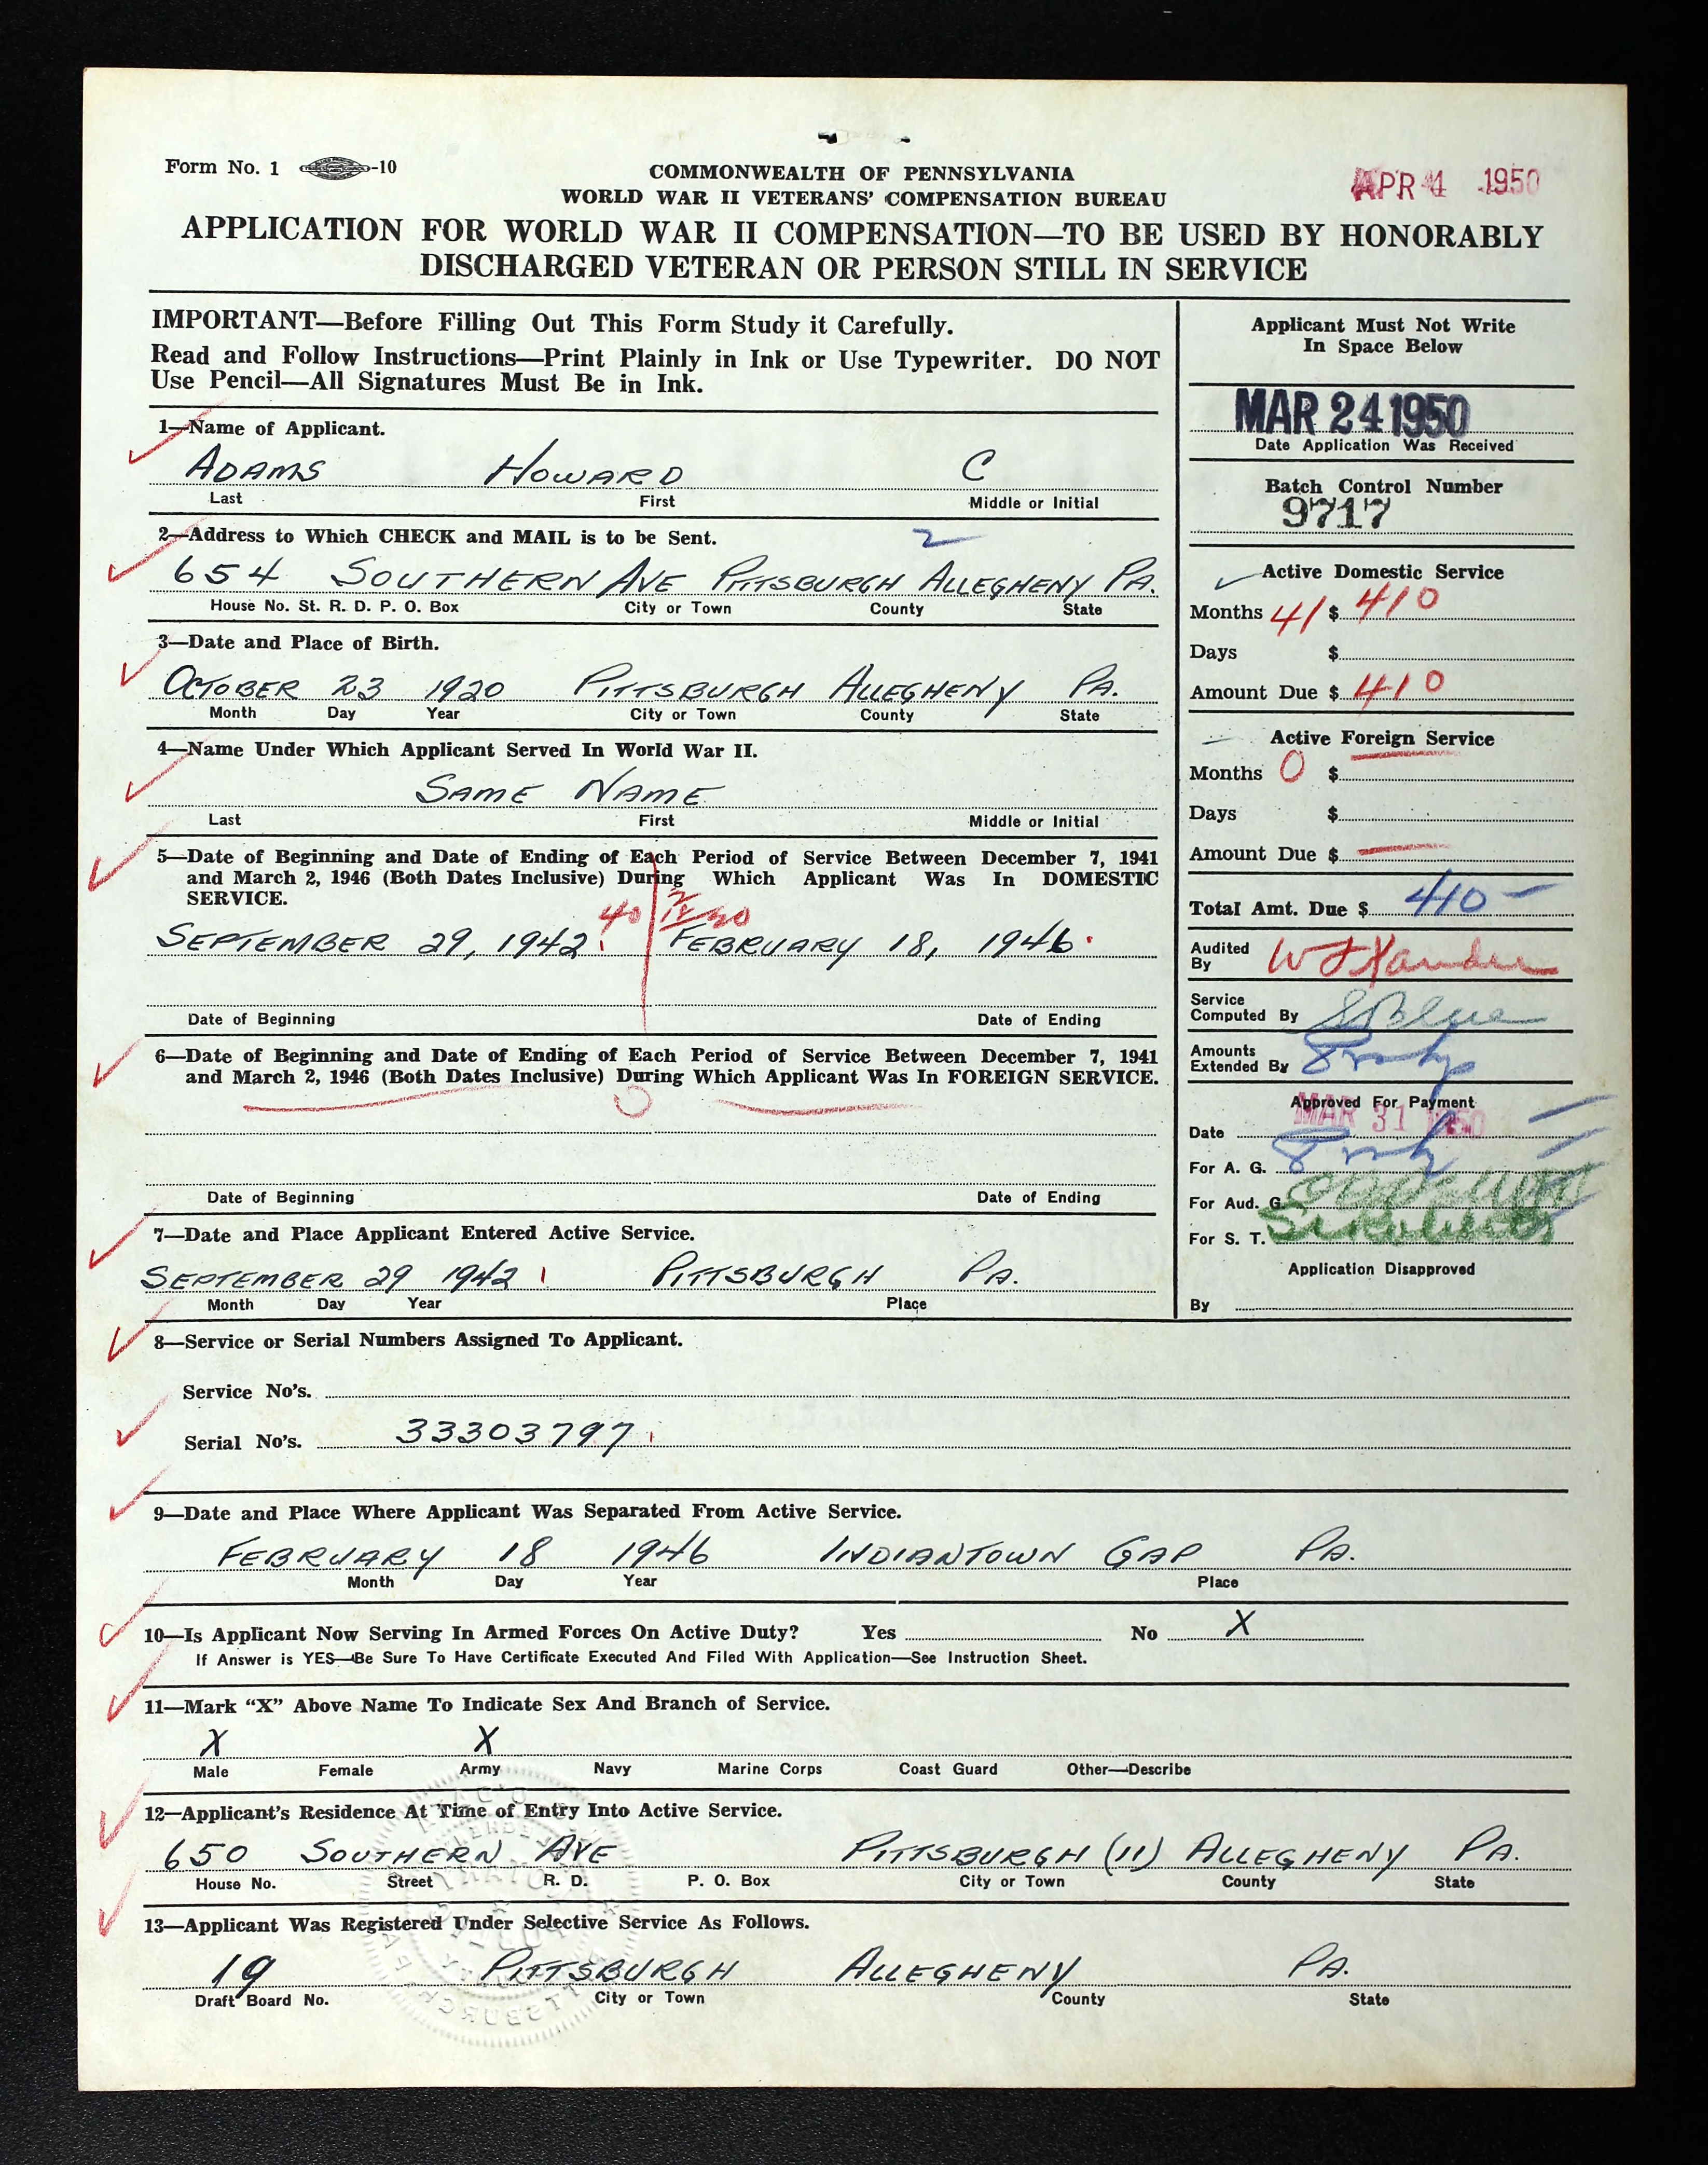 Form No. 1 -10
COMMONWEALTH OF PENNSYLVANIA
WORLD WAR II VETERANS' COMPENSATION BUREAU
APR 4 1950
APPLICATION FOR WORLD WAR II COMPENSATION—TO BE USED BY HONORABLY
DISCHARGED VETERAN OR PERSON STILL IN SERVICE
IMPORTANT—Before Filling Out This Form Study it Carefully.
Read and Follow Instructions—Print Plainly in Ink or Use Typewriter. DO NOT
Use Pencil—All Signatures Must Be in Ink.
1—Name of Applicant.
ADAMS HOWARD C
Last First Middle or Initial
2—Address to Which CHECK and MAIL is to be Sent. 2
654 SOUTHERN AVE PITTSBURGH ALLEGHENY PA.
House No. St. R. D. P. O. Box City or Town County State
3—Date and Place of Birth.
OCTOBER 23 1920 PITTSBURGH ALLEGHENY PA.
Month Day Year City or Town County State
4—Name Under Which Applicant Served In World War II.
SAME NAME
Last First Middle or Initial
5—Date of Beginning and Date of Ending of Each Period of Service Between December 7, 1941
and March 2, 1946 (Both Dates Inclusive) During Which Applicant Was In DOMESTIC
SERVICE.
40 20
SEPTEMBER 29, 1942 FEBRUARY 18, 1946
Date of Beginning Date of Ending
6—Date of Beginning and Date of Ending of Each Period of Service Between December 7, 1941
and March 2, 1946 (Both Dates Inclusive) During Which Applicant Was In FOREIGN SERVICE.
0
Date of Beginning Date of Ending
7—Date and Place Applicant Entered Active Service.
SEPTEMBER 29 1942 PITTSBURGH PA.
Month Day Year Place
Applicant Must Not Write
In Space Below
MAR 24 1950
Date Application Was Received
Batch Control Number
9717
Active Domestic Service
Months 41 $ 410
Days $
Amount Due $ 410
Active Foreign Service
Months 0 $
Days $
Amount Due $ —
Total Amt. Due $ 410 —
Audited
By
Service
Computed By SBlue
Amounts
Extended By
Approved For Payment
MAR 31 1950
Date
For A. G.
For Aud. G.
For S. T.
Application Disapproved
By
8—Service or Serial Numbers Assigned To Applicant.
Service No's.
Serial No's. 33303797
9—Date and Place Where Applicant Was Separated From Active Service.
FEBRUARY 18 1946 INDIANTOWN GAP PA.
Month Day Year Place
10—Is Applicant Now Serving In Armed Forces On Active Duty? Yes No X
If Answer is YES—Be Sure To Have Certificate Executed And Filed With Application—See Instruction Sheet.
11—Mark "X" Above Name To Indicate Sex And Branch of Service.
X X
Male Female Army Navy Marine Corps Coast Guard Other—Describe
12—Applicant's Residence At Time of Entry Into Active Service.
650 SOUTHERN AVE PITTSBURGH (11) ALLEGHENY PA.
House No. Street R. D. P. O. Box City or Town County State
13—Applicant Was Registered Under Selective Service As Follows.
19 PITTSBURGH ALLEGHENY PA.
Draft Board No. City or Town County State